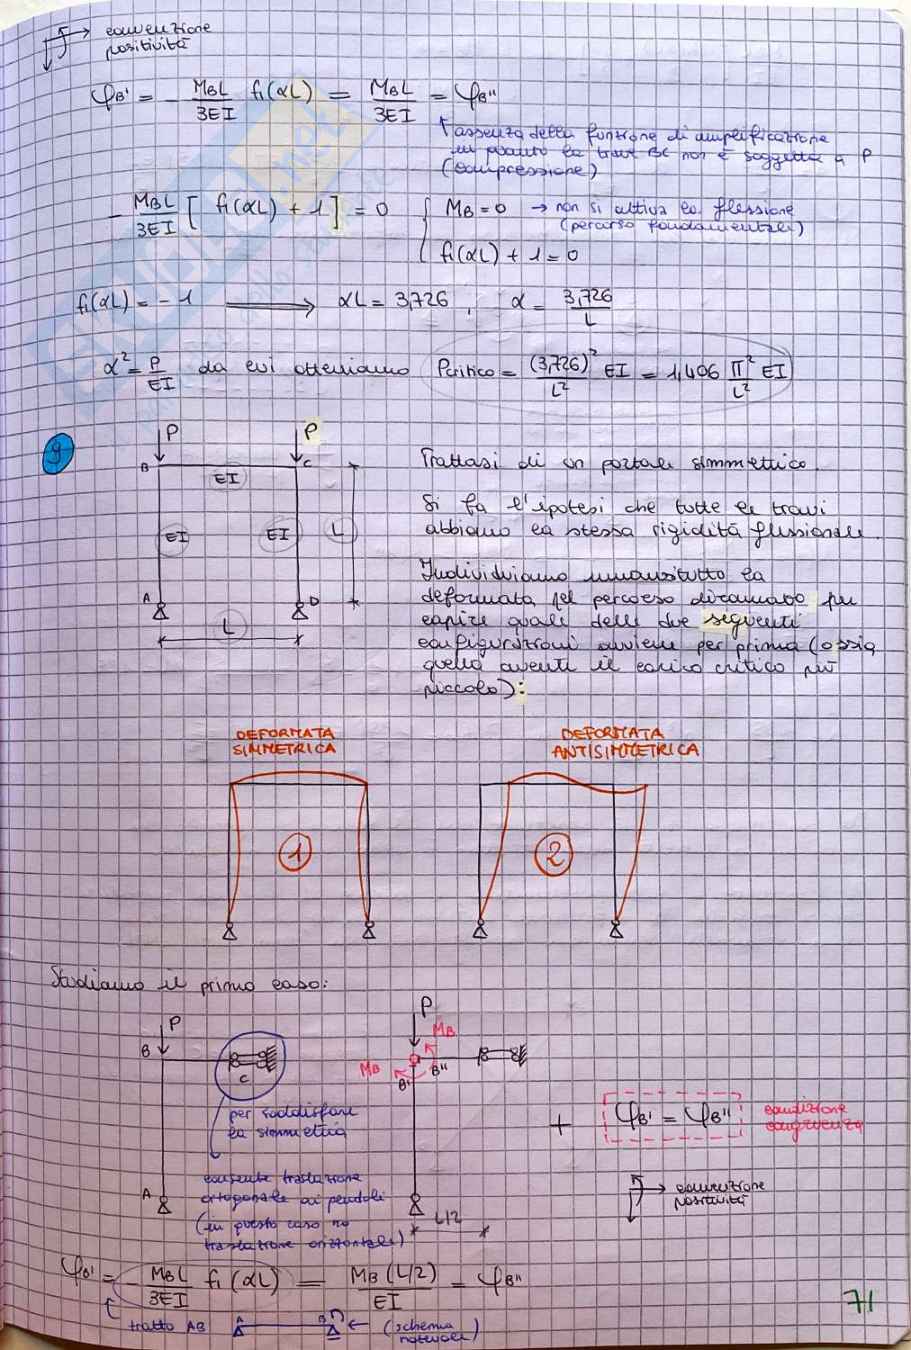 convenzione
positività
φB' = - MBL/3EI f1(αL) = MBL/3EI = φB''
assenza della funzione di amplificazione
in quanto la trave BC non è soggetta a P
(compressione)
- MBL/3EI [ f1(αL) + 1 ] = 0
MB = 0 → non si attiva la flessione
(percorso fondamentale)
f1(αL) + 1 = 0
f1(αL) = - 1 ⟹ αL = 3,726 , α = 3,726/L
α² = P/EI da cui otteniamo Pcritico = (3,726)²/L² EI = 1,406 π²/L² EI
9
P P
B C
EI
EI EI L
A D
L
Trattasi di un portale simmetrico.
Si fa l'ipotesi che tutte le travi
abbiano la stessa rigidità flessionale.
Individuiamo innanzitutto la
deformata nel percorso diramato per
capire quale delle due seguenti
configurazioni avviene per prima (ossia
quella aventi il carico critico più
piccolo):
DEFORMATA
SIMMETRICA
DEFORMATA
ANTISIMMETRICA
1
2
Studiamo il primo caso:
P
B
C
per soddisfare
la simmetria
consente traslazione
ortogonale ai pendoli
(in questo caso no
traslazione orizzontale)
A
P
MB
MB
B' B''
L/2
+ φB' = φB''
condizione
congruenza
convenzione
positività
φB' = - MBL/3EI f1(αL) = MB(L/2)/EI = φB''
tratto AB
A B
(schema
notevole)
71